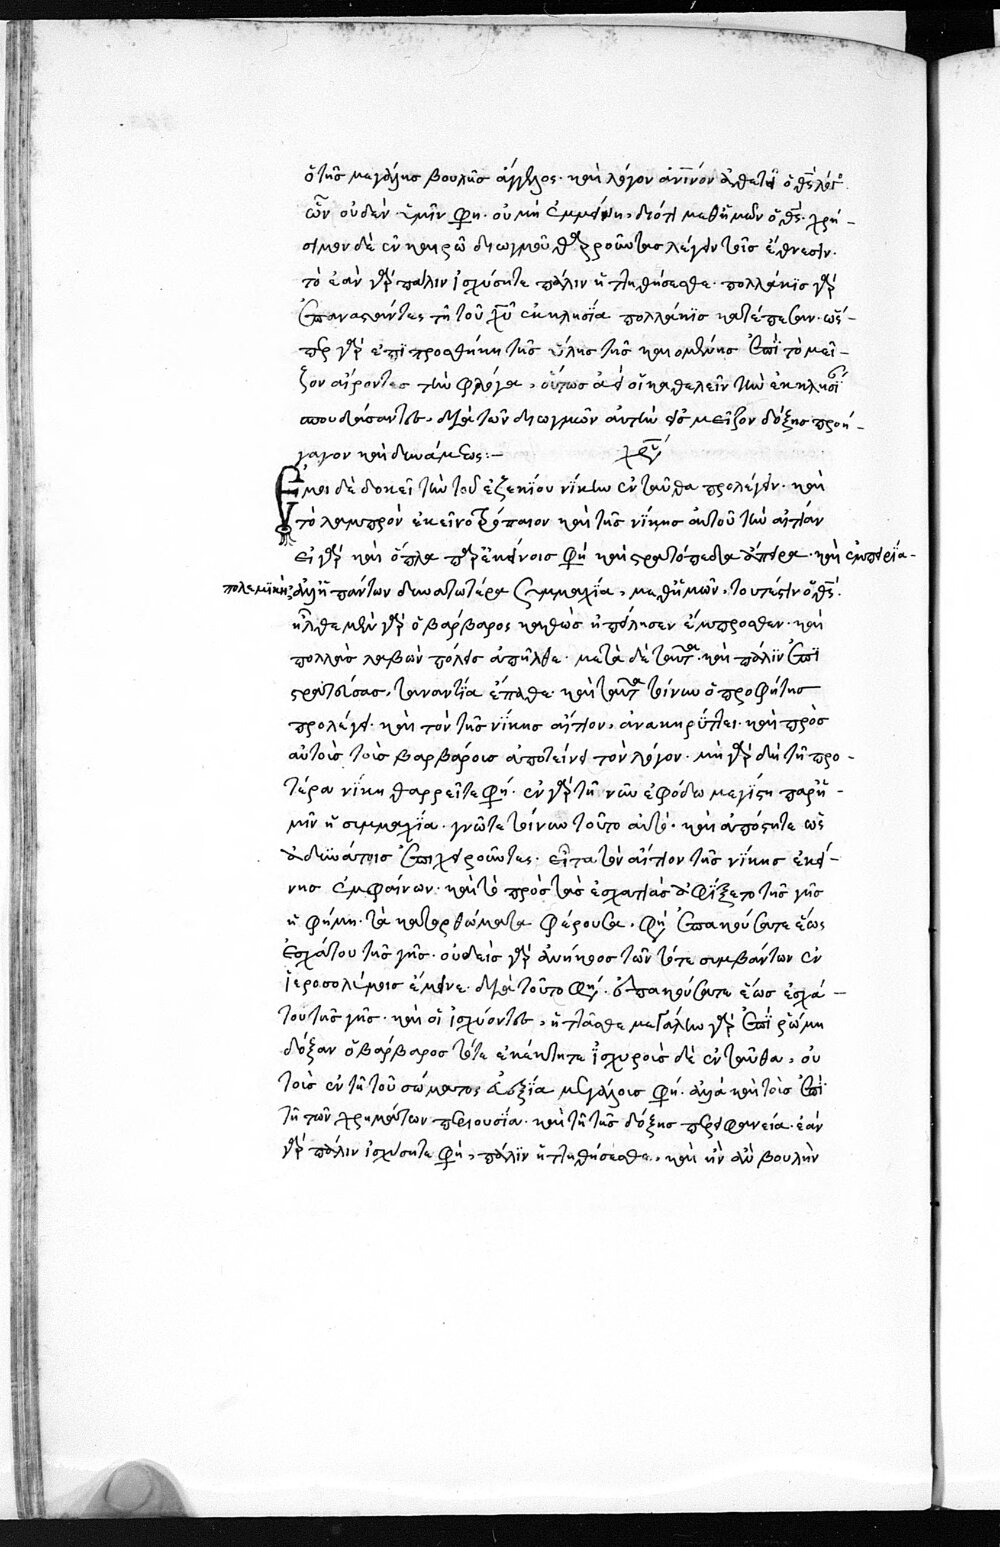 ὁ τῆς μεγάλης βουλῆς ἄγγελος· καὶ λόγον ἀνθετεῖ ὁ θς λόγ
ὧν οὐδὲν ὑμῖν φη· οὐ μὴ ἐμμείνῃ, διότι μεθ ἡμῶν ὁ θς. χρή-
σιμον δὲ ἐν καιρῶ διωγμοῦ θαρροῦντας λέγειν τοῖς ἔθνεσιν.
τὸ ἐὰν γὰρ πάλιν ἰσχύσητε πάλιν ἡττηθήσεσθε· πολλάκις γὰρ
ἐπαναστάντες τῇ τοῦ χυ ἐκκλησία πολλάκις κατέπεσαν· ὥσ-
περ γὰρ ἐπὶ προσθήκη τῆς ὕλης τῆς καιομένης ἐπὶ τὸ μεῖ-
ζον αἴροντες τὴν φλόγα, οὕτως ἀεὶ οἱ καθελεῖν τὴν ἐκκλησίαν
σπουδάσαντες, διὰ τῶν διωγμῶν αὐτὴν εἰς μεῖζον δόξης προή-
γαγον καὶ δυνάμεως:-
Ἐμοὶ δὲ δοκεῖ τὴν τοῦ ἐζεκίου νίκην ἐνταῦθα προλέγειν· καὶ
τὸ λαμπρὸν ἐκεῖνο τρόπαιον καὶ τῆς νίκης αὐτοῦ τὴν αἰτίαν
εἰ γὰρ καὶ ὅπλα παρ ἐκείνοις φη καὶ στρατόπεδα ἄπειρα· καὶ ἐμπειρία-
πολεμικὴ, ἀλλ ἡ πάντων δυνατωτέρα συμμαχία, μεθ ἡμῶν, τουτέστιν ὁ θς.
ἦλθε μὲν γὰρ ὁ βάρβαρος καθὼς ἠπείλησεν ἔμπροσθεν· καὶ
πολλὰς λαβὼν πόλεις ἀπῆλθε· μετὰ δὲ ταῦτα· καὶ πάλιν ἐπι
στρατεύσας, τἀναντία ἔπαθε· καὶ ταῦτα τοίνυν ὁ προφήτης
προλέγει· καὶ τὸν τῆς νίκης αἴτιον, ἀνακηρύττει· καὶ πρὸς
αὐτοὺς τοὺς βαρβάρους ἀποτείνει τὸν λόγον· μὴ γὰρ δὴ τῇ προ-
τέρα νίκη θαρρεῖτε φη. ἐν γὰρ τῇ νῦν ἐφόδω μεγίστη παρ ἡ-
μῖν ἡ συμμαχία· γνῶτε τοίνυν τοῦτο αὐτό· καὶ ἀπόστητε ὡς
ἀδυνάτοις ἐπιχειροῦντες· εἶτα τὸν αἴτιον τῆς νίκης ἐκεί-
νης ἐμφαίνων· καὶ τὸ πρὸς τὰς ἐσχατιὰς ἀφίξετο τῆς γῆς
ἡ φήμη· τὰ κατορθώματα φέρουσα, φη ἐπακούσατε ἕως
ἐσχάτου τῆς γῆς· οὐδεὶς γὰρ ἀνήκοος τῶν τότε συμβάντων ἐν
ἱεροσολύμοις ἔμεινε· διὰ τοῦτο φη. ἐπακούσατε ἕως ἐσχά-
του τῆς γῆς· καὶ οἱ ἰσχύοντες, ἡττᾶσθε μεγάλην γὰρ ἐπὶ ῥώμη
δόξαν ὁ βάρβαρος τότε ἐκέκτητο ἰσχυροῖς δὲ ἐνταῦθα, οὐ
τοῖς ἐν τῇ τοῦ σώματος εὐεξία μεγάλοις φη. ἀλλὰ καὶ τοῖς ἐπὶ
τῇ τῶν χρημάτων περιουσία· καὶ τῇ τῆς δόξης περιφανεία· ἐὰν
γὰρ πάλιν ἰσχύσητε φη, πάλιν ἡττηθήσεσθε, καὶ ἣν ἂν βουλὴν